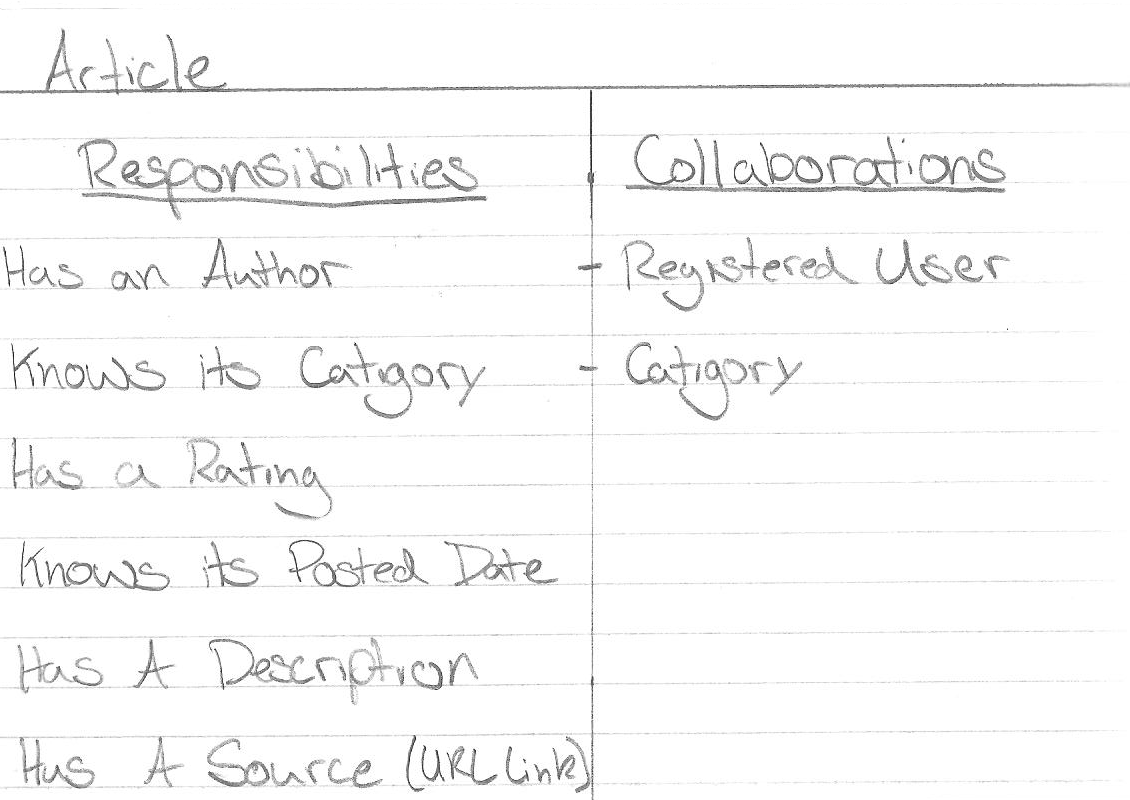 Article
Responsibilities Collaborations
Has an Author - Registered User
Knows its Catigory - Catigory
Has a Rating
Knows its Posted Date
Has A Description
Has A Source (URL Link)